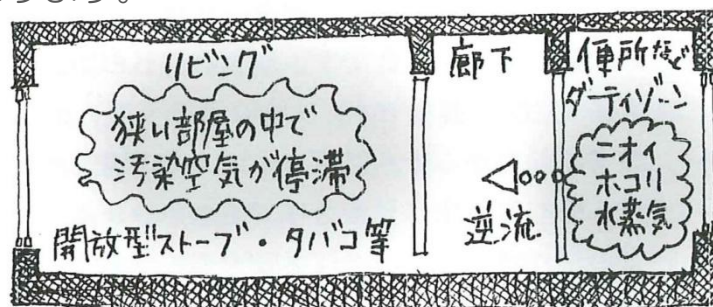 リビング
狭い部屋の中で
汚染空気が停滞
開放型ストーブ・タバコ等
廊下
逆流
便所など
ダーティゾーン
ニオイ
ホコリ
水蒸気